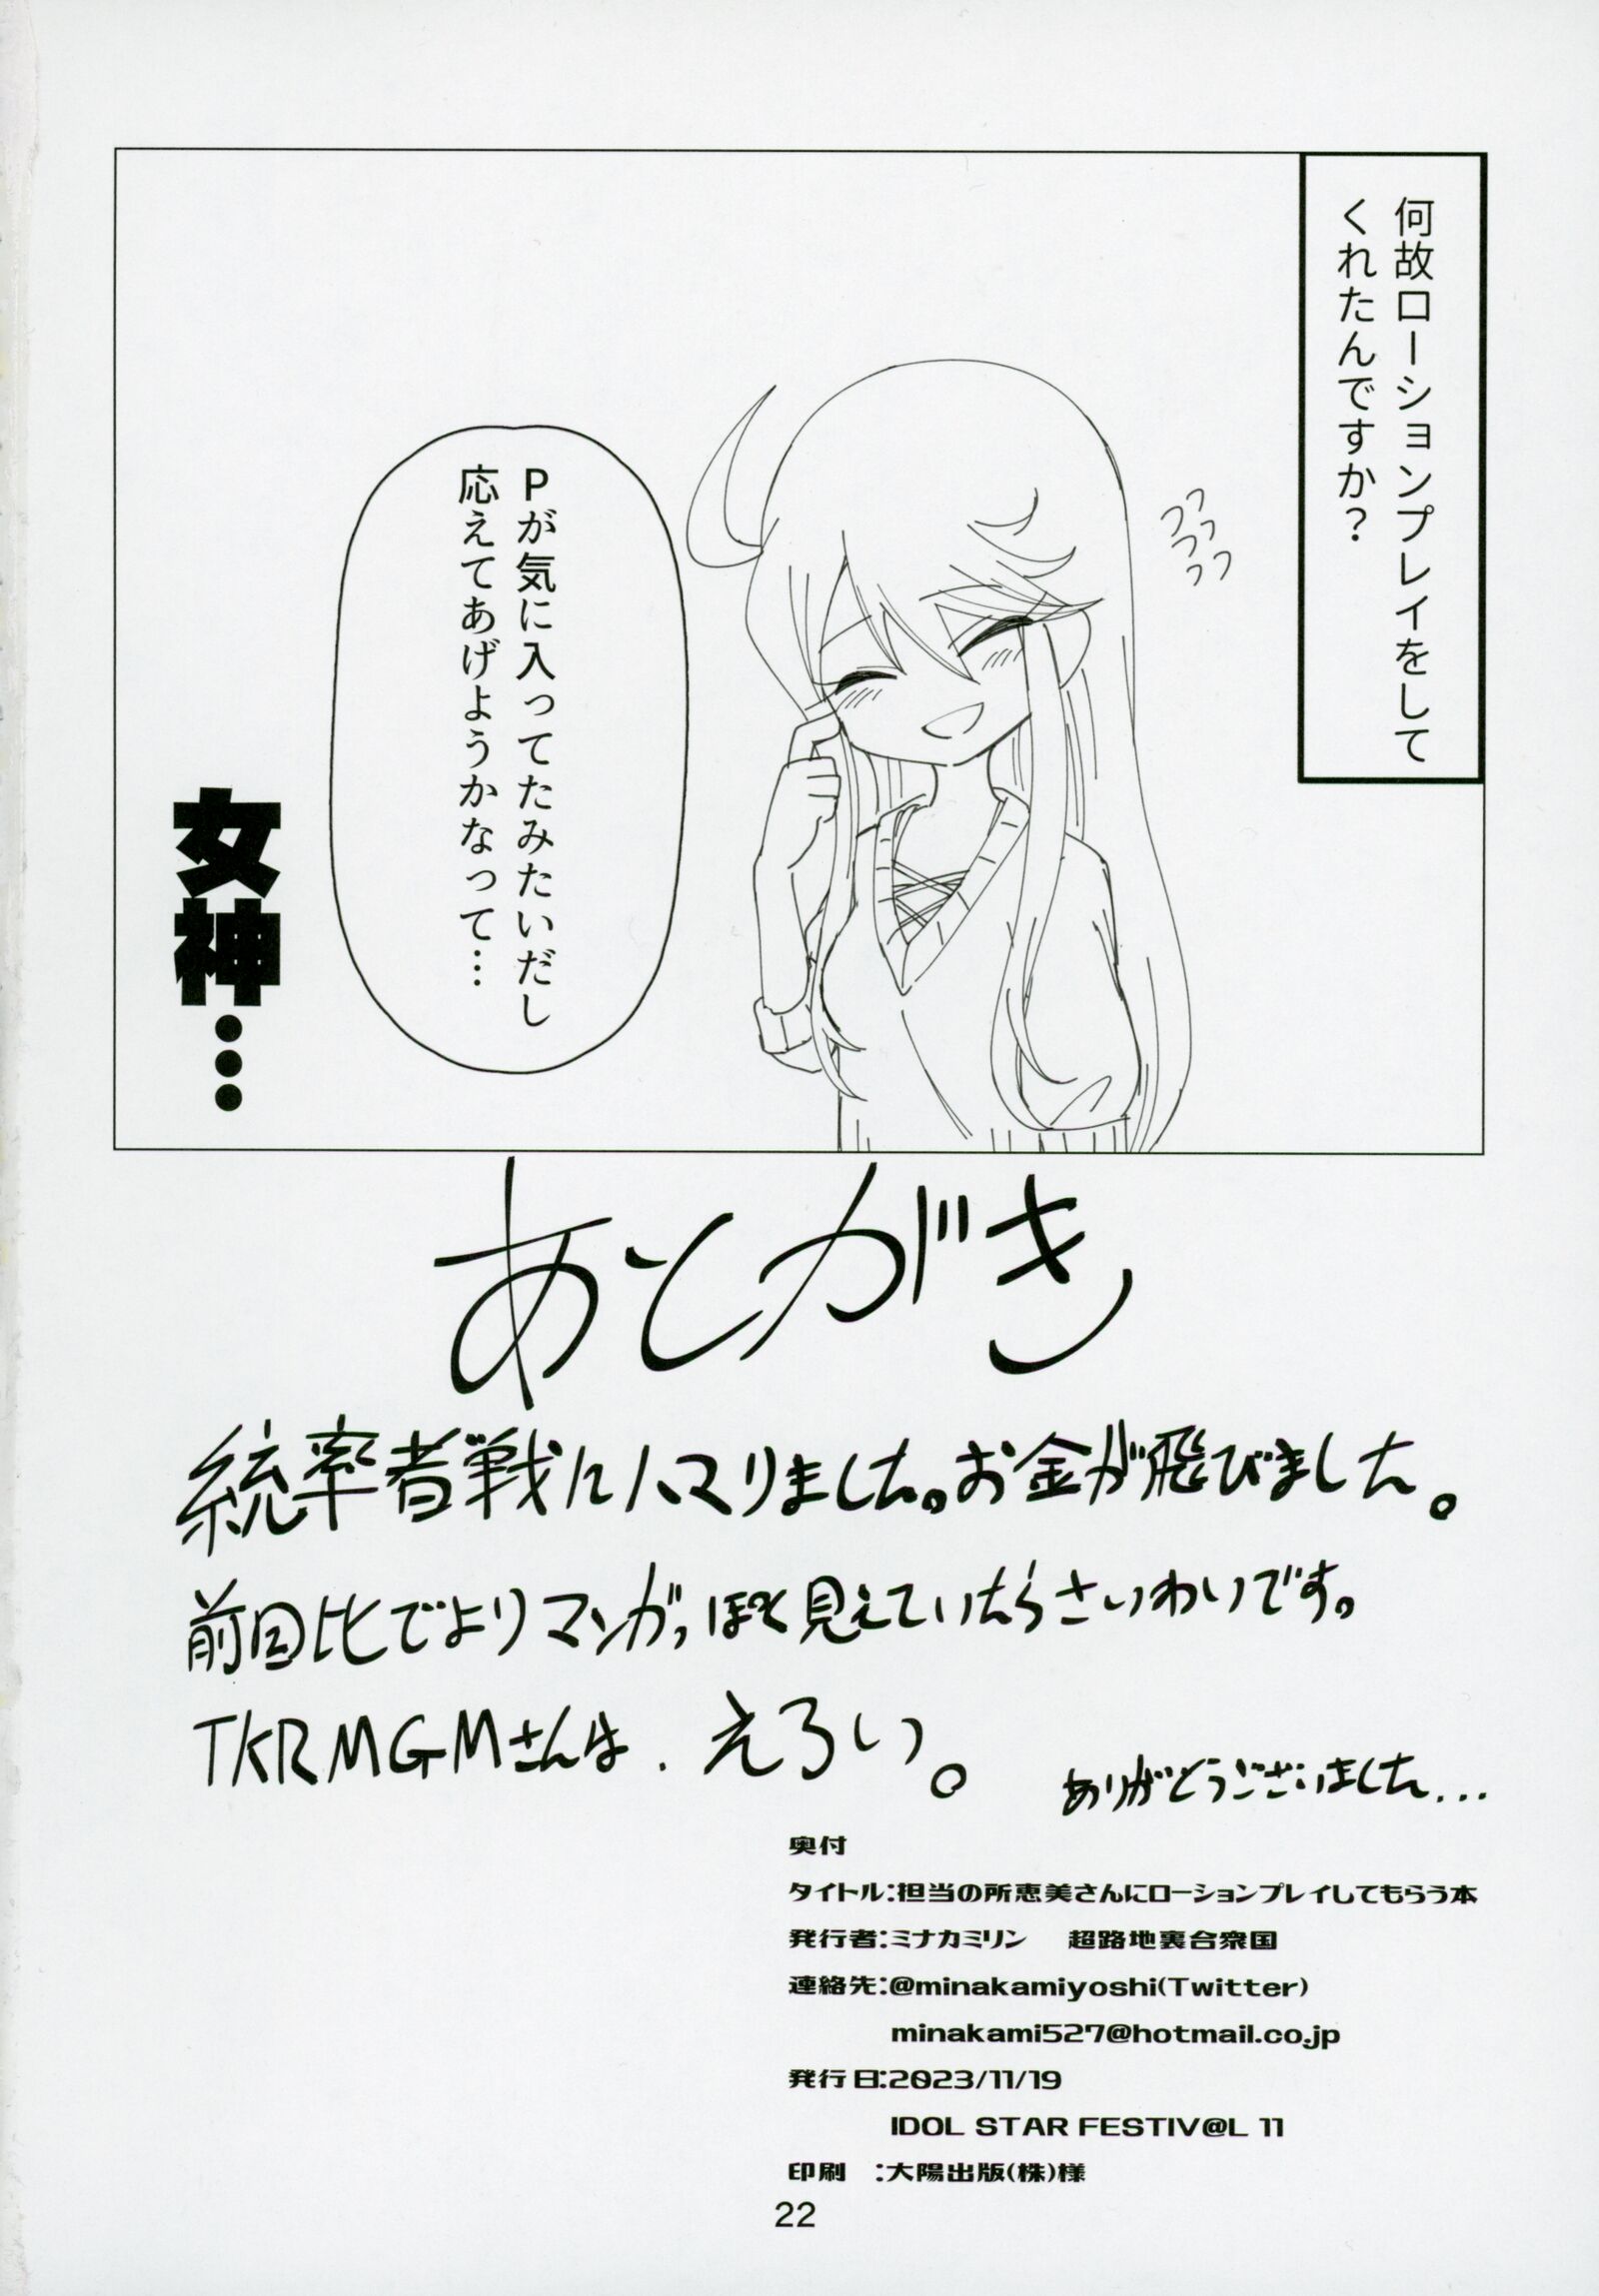 何故ローションプレイをして
くれたんですか？
フフ
フフ
フフ
Pが気に入ってたみたいだし
応えてあげようかなって…
女神…
あとがき
統率者戦にハマりました。お金が飛びました。
前回比でよりマンガっぽく見えていたらさいわいです。
TKRMGMさんは、えろい。
ありがとうございました...
奥付
タイトル:担当の所恵美さんにローションプレイしてもらう本
発行者:ミナカミリン 超路地裏合衆国
連絡先:@minakamiyoshi(Twitter)
minakami527@hotmail.co.jp
発行日:2023/11/19
IDOL STAR FESTIV@L 11
印刷 :大陽出版(株)様
22